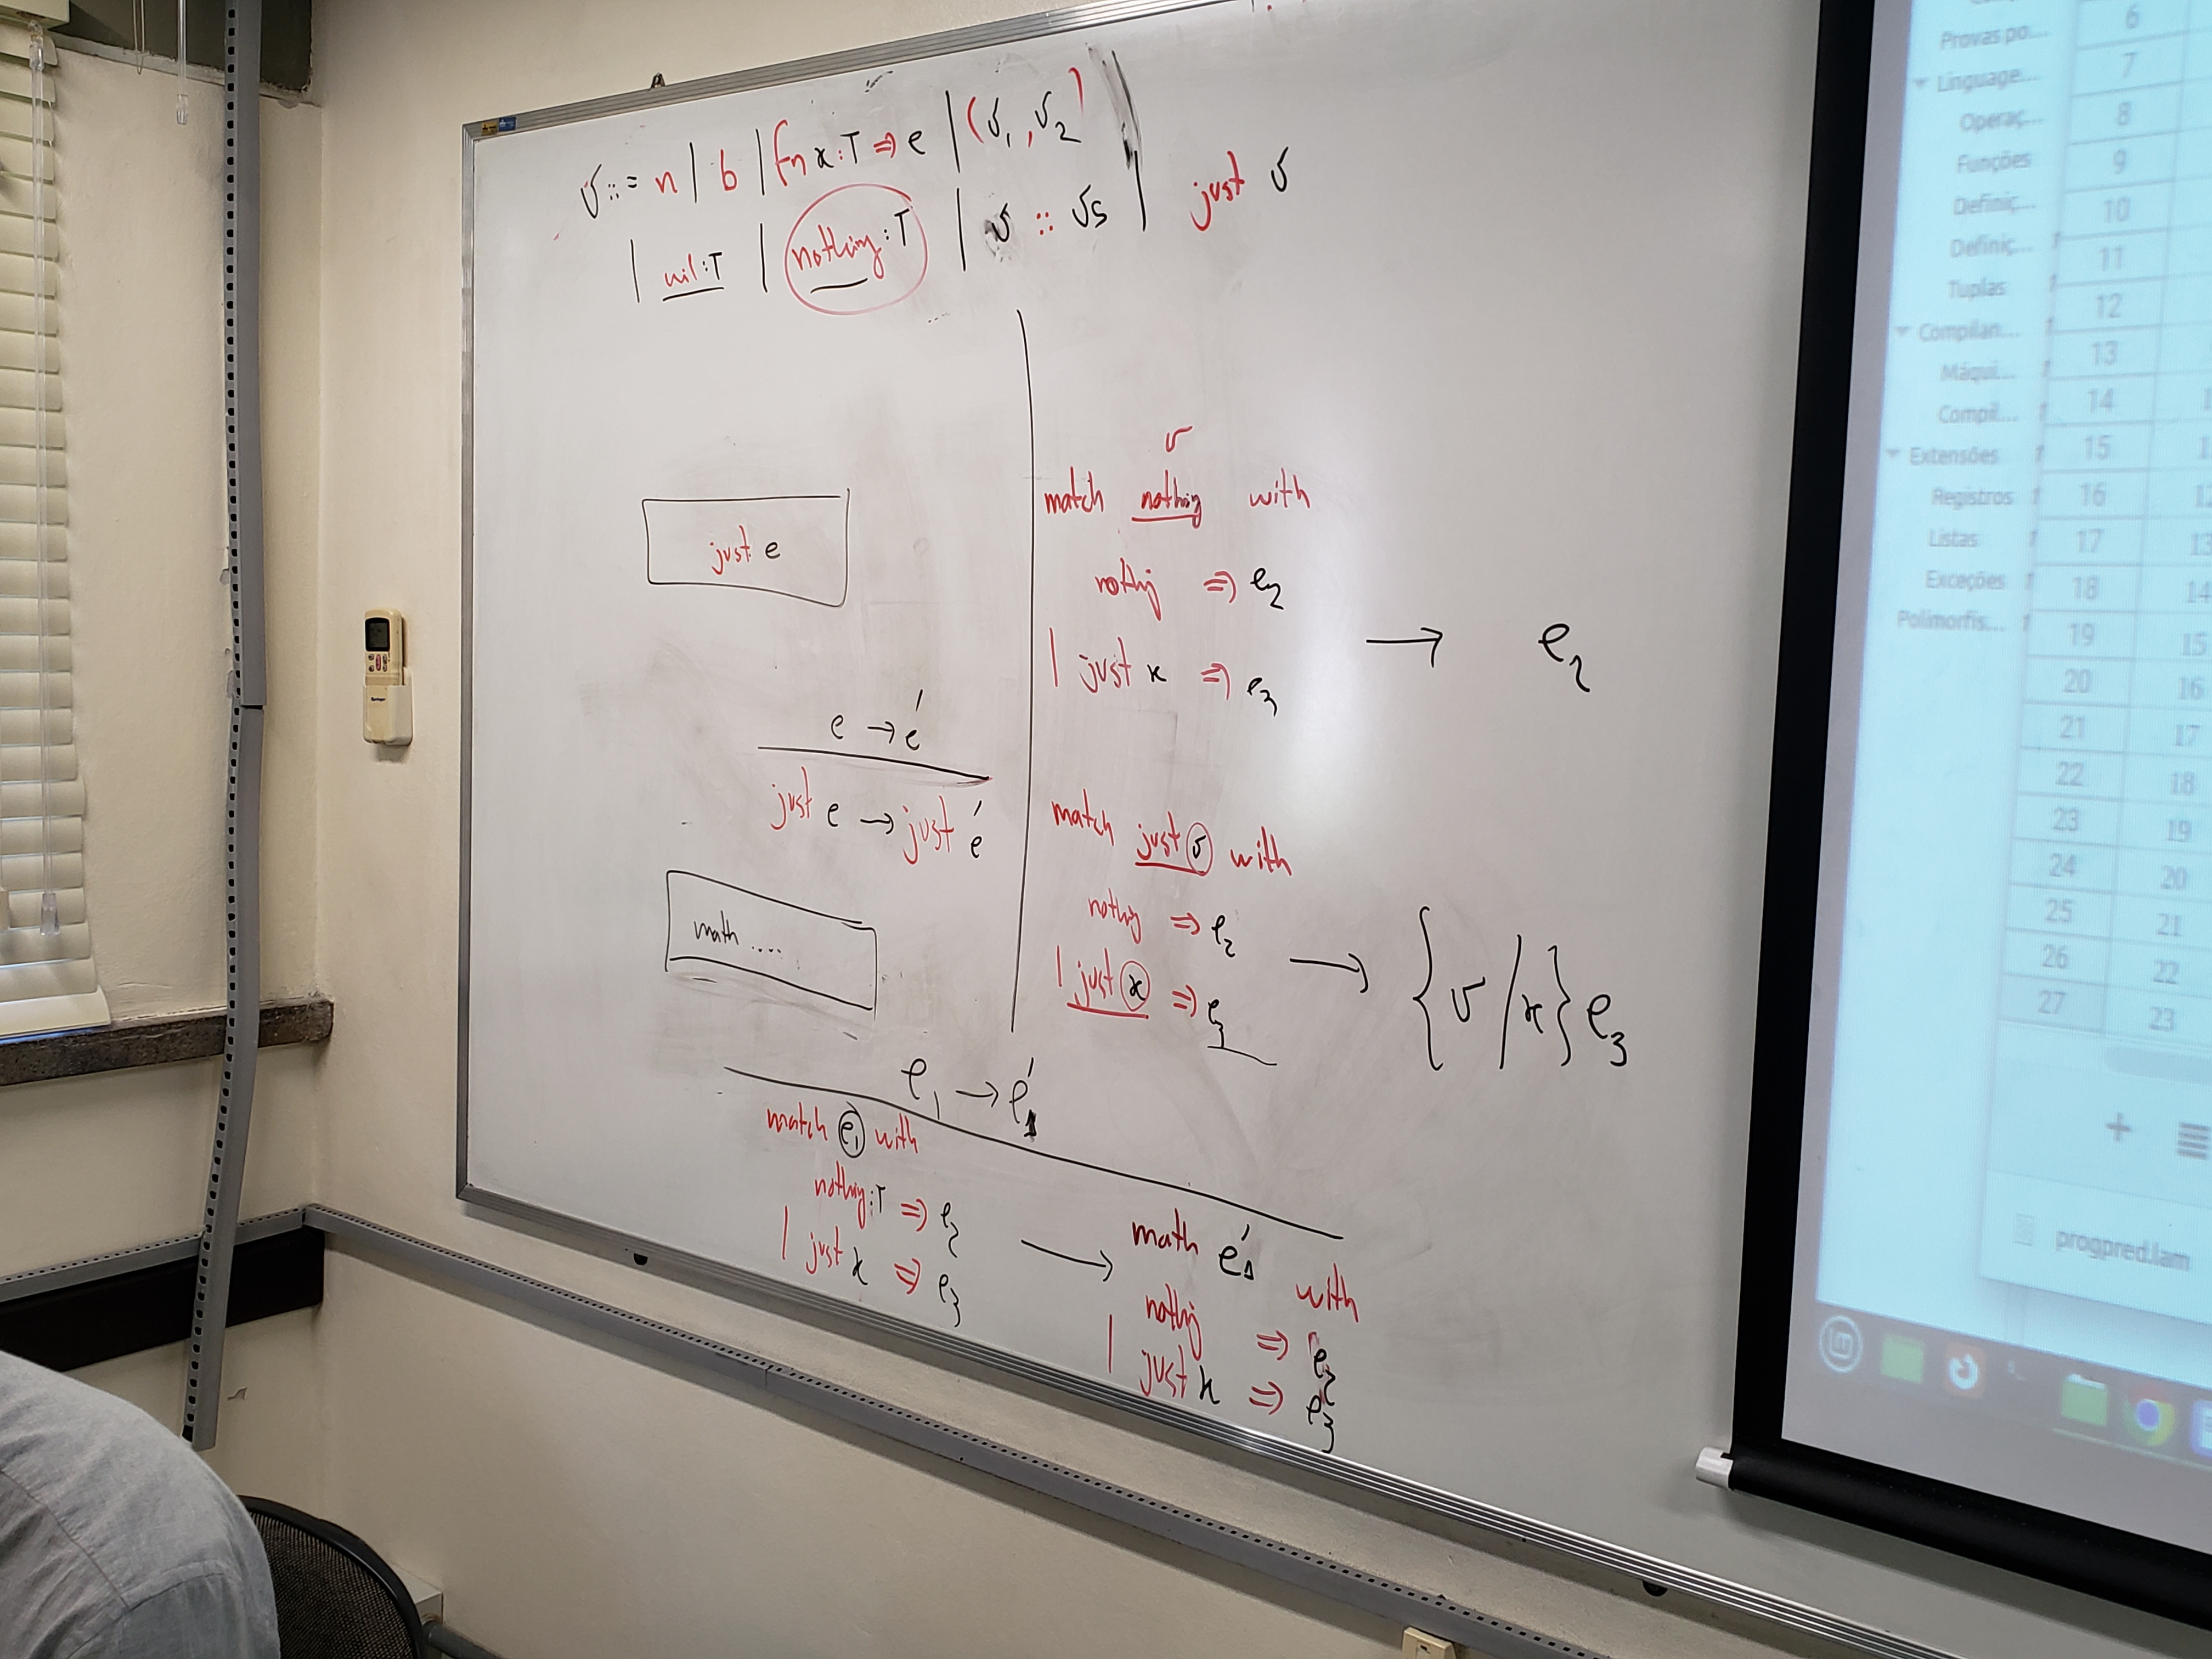 v ::= n | b | fn x:T ⇒ e | (v₁, v₂) |
| nil:T | nothing:T | v :: vs | just v
just e
e → e'
just e → just e'
math ....
v
match nothing with
nothig ⇒ e₂
| just x ⇒ e₃
→ e₂
match just v with
nothig ⇒ e₂
| just x ⇒ e₃
→ {v/x} e₃
e₁ → e₁'
match e₁ with
nothing:T ⇒ e₂
| just x ⇒ e₃
→
math e₁' with
nothig ⇒ e₂
| just x ⇒ e₃
Provas po...
Linguage...
Operaç...
Funções
Definiç...
Definiç...
Tuplas
Compilan...
Máqui...
Compil...
Extensões
Registros
Listas
Exceções
Polimorfis...
6
7
8
9
10
11
12
13
14
15
16
17 13
18 14
19 15
20 16
21 17
22 18
23 19
24 20
25 21
26 22
27 23
+
progpred.lam